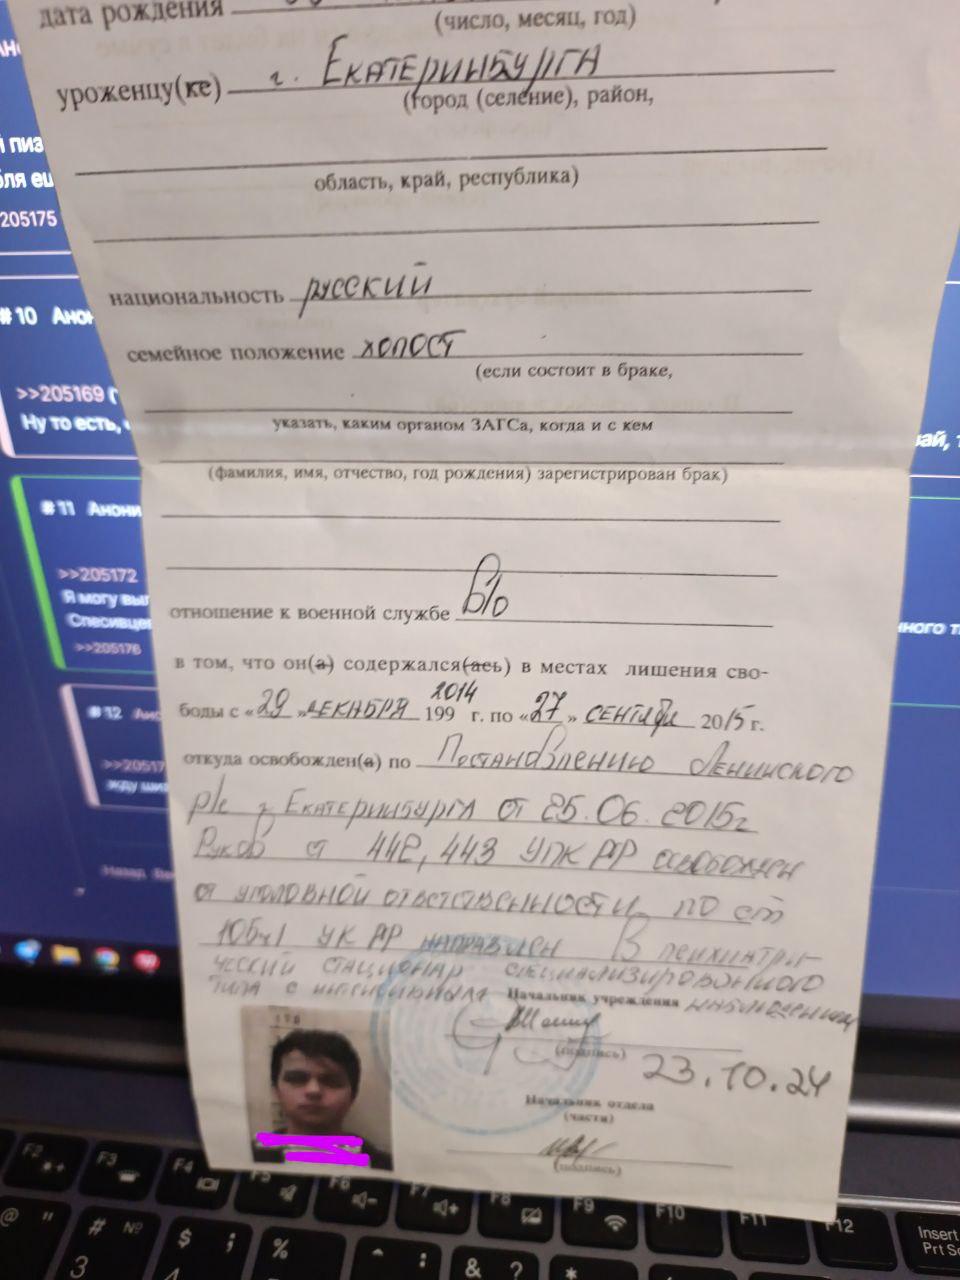 дата рождения
(число, месяц, год)
уроженцу(ке) г. Екатеринбурга
(город (селение), район,
область, край, республика)
национальность русский
семейное положение холост
(если состоит в браке,
указать, каким органом ЗАГСа, когда и с кем
(фамилия, имя, отчество, год рождения) зарегистрирован брак)
отношение к военной службе в/о
в том, что он(а) содержался(ась) в местах лишения сво-
боды с «29» декабря 199 2014 г. по «27» сентября 2015 г.
откуда освобожден(а) по Постановлению Ленинского
р/с г. Екатеринбурга от 25.06.2015г
Руков ст 442, 443 УПК РФ освобожден
от уголовной ответственности по ст
105ч1 УК РФ направлен в психиатри-
ческий стационар специализированного
типа с интенсивным наблюдением
Начальник учреждения
(подпись)
23.10.24
Начальник отдела
(части)
(подпись)
205175
#10 Анон
>>205169
Ну то есть,
#11 Анони
>>205172
Я могу
>>205176
#12
>>20517
F2
F3
F4
F5
F6
F7
F8
F9
F10
F11
F12
Insert
Prt Sc
@ "
# №
3
$ ;
4
%
^ :
& ?
*